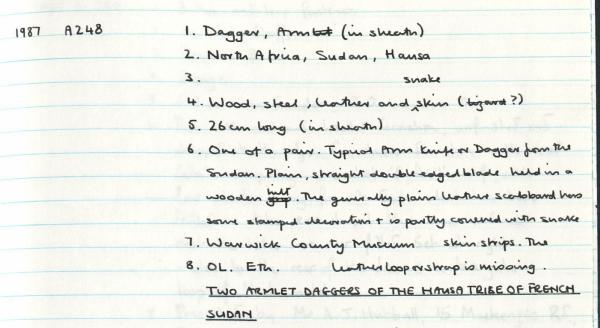 1987 A248 1. Dagger, Arm (in sheath)
2. North Africa, Sudan, Hausa
3.
snake
4. Wood, steel, leather and skin (lizard?)
5. 26cm long (in sheath)
6. One of a pair. Typical Arm Knife or Dagger from the
Sudan. Plain, straight double edged blade held in a
hilt
wooden grip. The generally plain leather scabbard has
some stamped decoration + is partly covered with snake
7. Warwick County Museum skin strips. The
8. OL. Eth. leather loop or strap is missing.
TWO ARMLET DAGGERS OF THE HAUSA TRIBE OF FRENCH
SUDAN